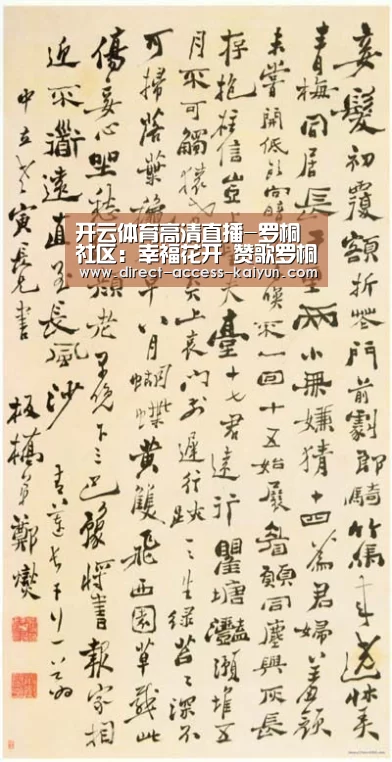 妾髮初覆額折花門前劇郎騎竹馬來遶床弄
青梅同居長里兩小無嫌猜十四為君婦羞顏
未嘗開低頭向暗喚不一回十五始展眉願同塵與灰長
存抱柱信豈夫臺十七君遠行瞿塘灩澦堆五
月不可觸猿上哀門前遲行跡一一生綠苔苔深不
可掃落葉早八月蝴蝶黃雙飛西園草感此
傷妾心坐愁顏老早晚下三巴豫將書報家相
近不道遠直至長風沙
青蓮長干行一首為
中立寅長兄書
板橋弟鄭燮
开云体育高清直播-罗桐
社区：幸福花开 赞歌罗桐
www.direct-access-kaiyun.com